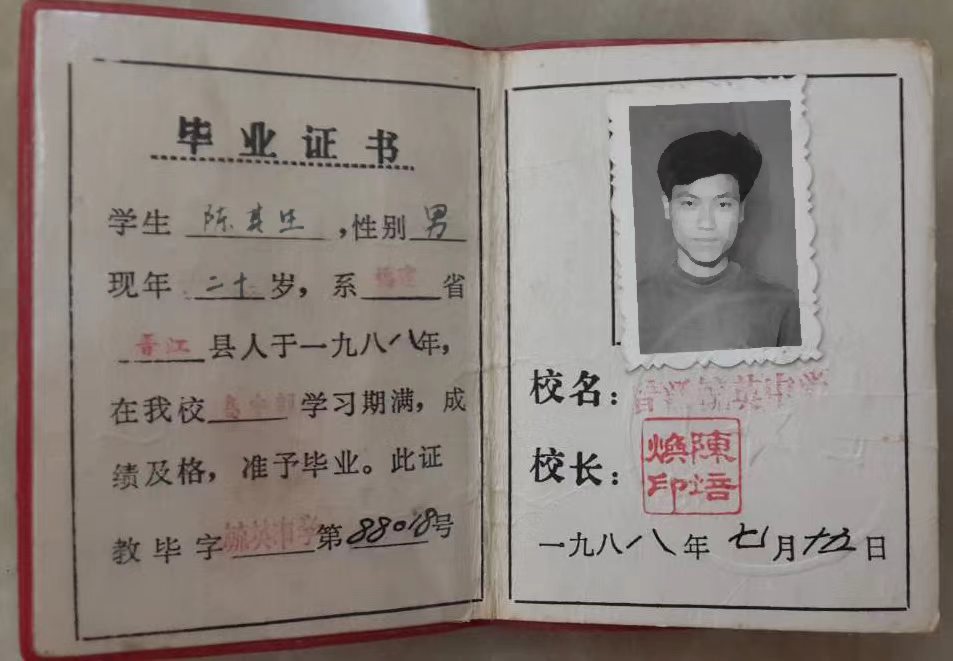 毕业证书
学生 陈其生 ,性别 男
现年 二十 岁，系 福建 省
晋江 县人于一九八八年，
在我校 高中部 学习期满，成
绩及格，准予毕业。此证
教毕字 毓英中学 第 88018 号
校名：晋江毓英中学
校长：陳培煥印
一九八八年七月十五日